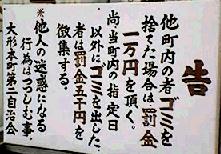 告
他町内の者ゴミを
捨てた場合は罰金
一万円を頂く。
尚、町内の指定日
以外にゴミを出した
者は罰金五千円を
徴集する。
※他人の迷惑になる
行為は、つつしむ事、
大形本町第二自治会